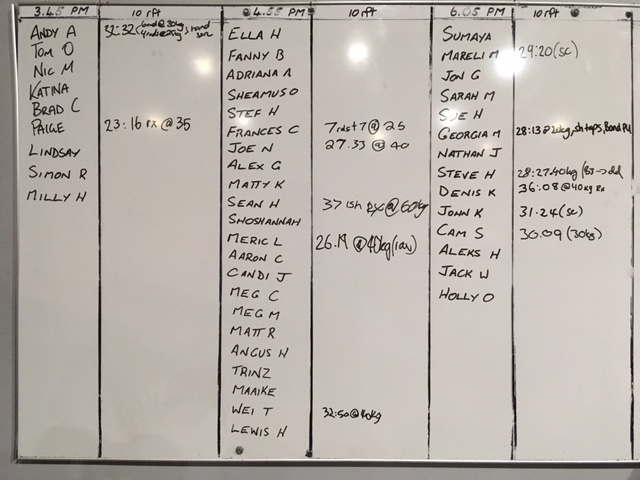 3.45 PM 10 rft
ANDY A 32:32
TOM O
NIC M
KATINA
BRAD C
PAIGE 23:16 RX @ 35
LINDSAY
SIMON R
MILLY H
4.55 PM 10 rft
ELLA H
FANNY B
ADRIANA A
SHEAMUS O
STEF H
FRANCES C 7 rds + 7 @ 25
JOE N 27.33 @ 40
ALEX G
MATTY K
SEAN H 37 ish RX @ 60kg
SHOSHANNAH
MERIC L 26.19 @ 40kg (raw)
AARON C
CANDI J
MEG C
MEG M
MATT R
ANGUS H
TRINZ
MAAIKE
WEI T 32:50 @ 40kg
LEWIS H
6.05 PM 10 rft
SUMAYA
MARELI M 29:20 (sc)
JON G
SARAH M
SUE H
GEORGIA M 28:13 @ 20kg, sh taps, Band PU
NATHAN J
STEVE H 28:27 40kg
DENIS K 36:08 @ 40kg Rx
JOHN K 31.24 (sc)
CAM S 30.09 (30kg)
ALEKS H
JACK W
HOLLY O